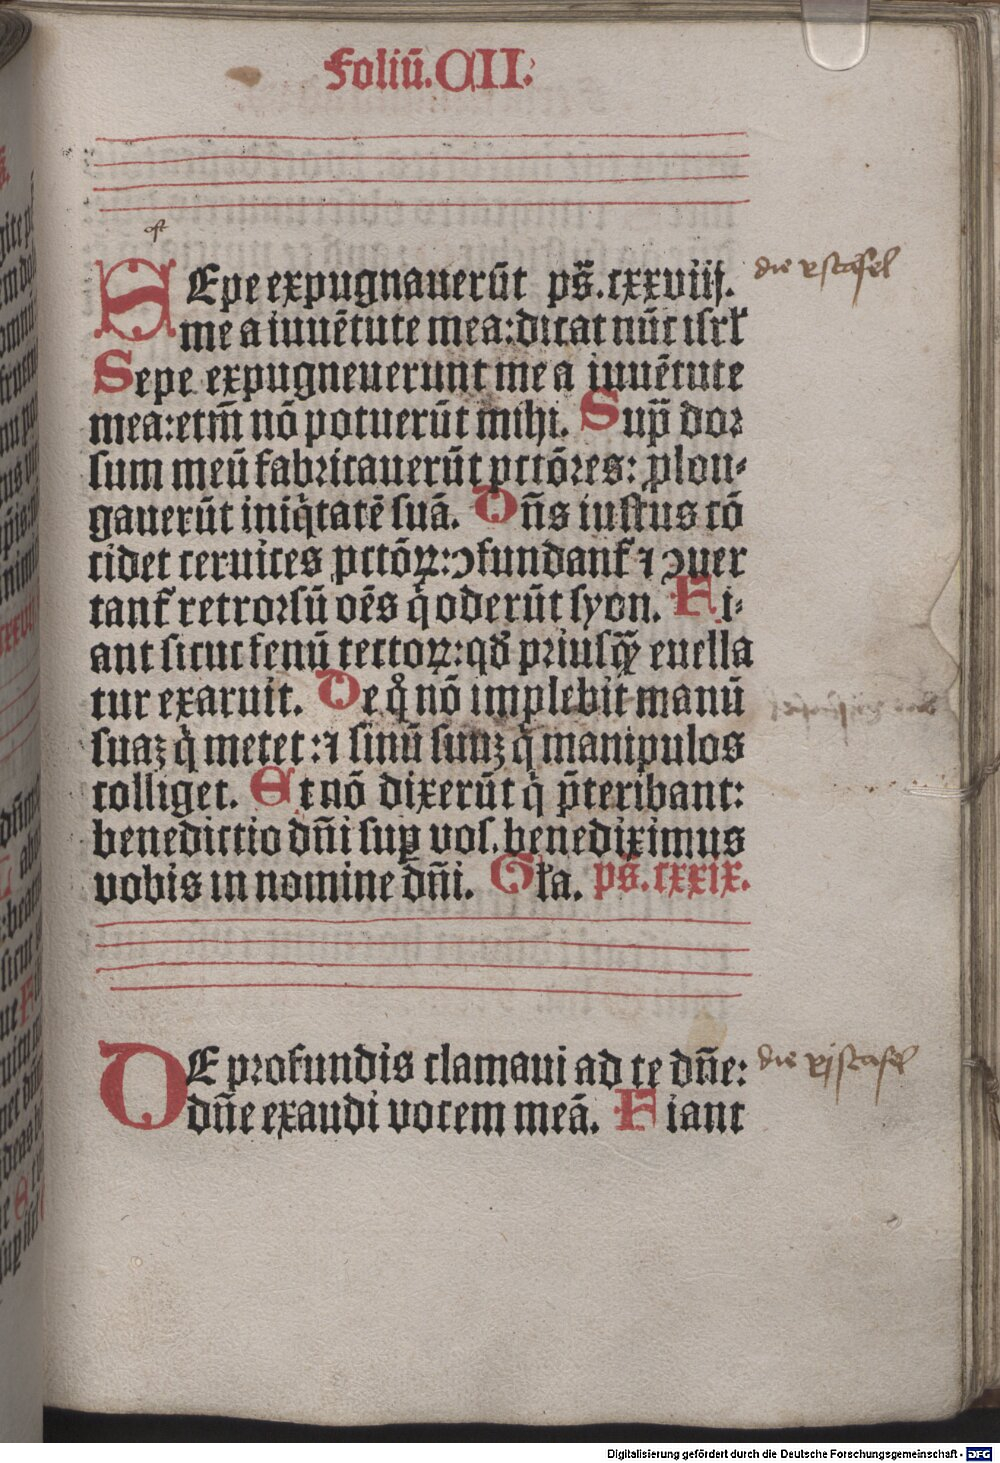 Foliū.CII.
oft
SEpe expugnauerūt ps̄.cxxviij.
die x staffel
me a iuuētute mea:dicat nūc isrł
Sepe expugneuerunt me a iuuētute
mea:etm̄ nō potuerūt mihi. Sup̄ dor
sum meū fabricauerūt pctōres: ꝓlon⸗
gauerūt iniq̇tatē suā. Dn̄s iustus cō
cidet ceruices pctōꝝ:ↄfundant᷑ ⁊ ↄuer
tant᷑ retrorsū oēs q̇ oderūt syon. Fi⸗
ant sicut fenū tectoꝝ:qď priusqȝ̄ euella
tur exaruit. De q̊ nō implebit manū
suaꝫ q̇ metet:⁊ sinū suuꝫ q̇ manipulos
colliget. Et nō dixerūt q̇ p̄teribant:
benedictio dn̄i suꝑ vos.benediximus
vobis in nomine dn̄i. Gła. ps̄.cxxix.
DE profundis clamaui ad te dn̄e:
die xj staffel
dn̄e exaudi vocem meā. Fiant
Digitalisierung gefördert durch die Deutsche Forschungsgemeinschaft - DFG